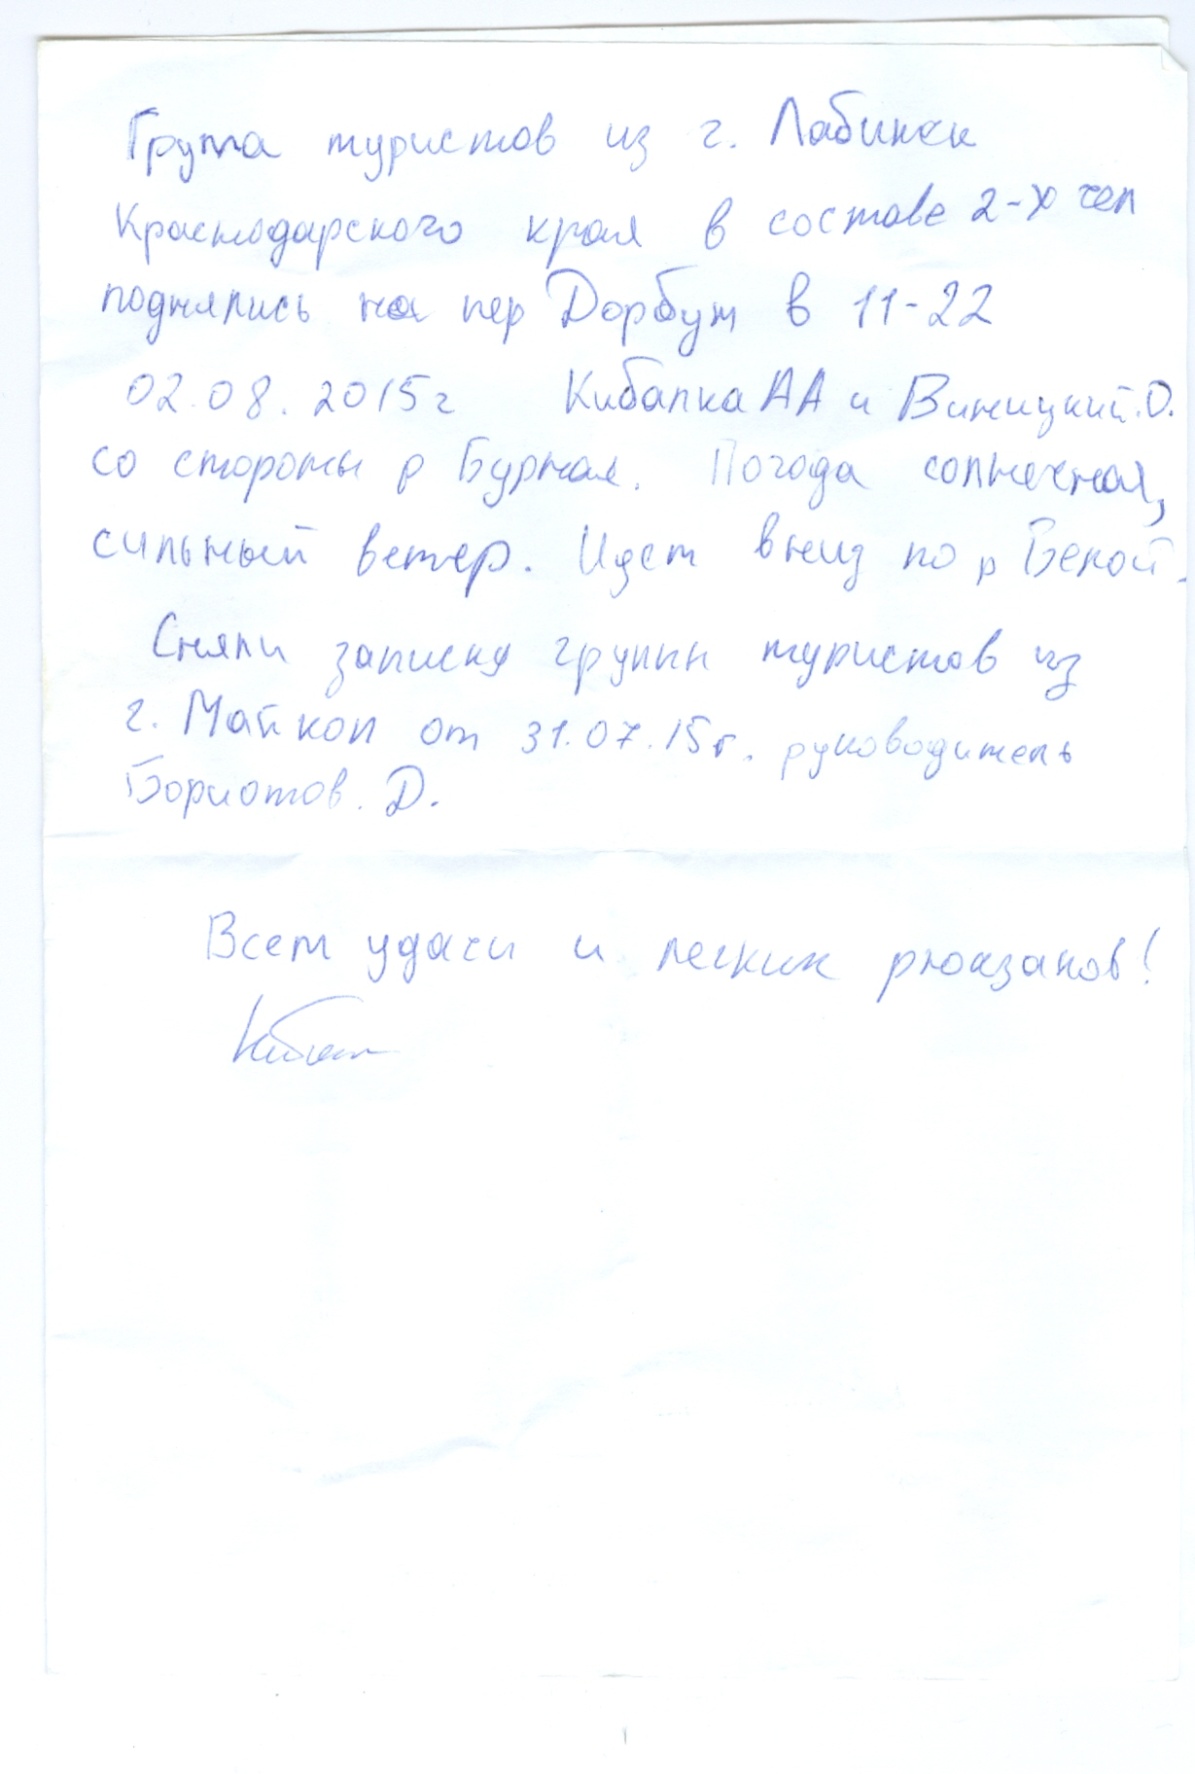 Группа туристов из г. Лабинск
Краснодарского края в составе 2-х чел
поднялись на пер Дорбун в 11-22
02.08.2015г Кибалка АА и Виницкий.О.
со стороны р Бурная. Погода солнечная,
сильный ветер. Идем вниз по р Белой.
Сняли записку группы туристов из
г. Майкоп от 31.07.15г. руководитель
Д.
Всем удачи и легких рюкзаков!